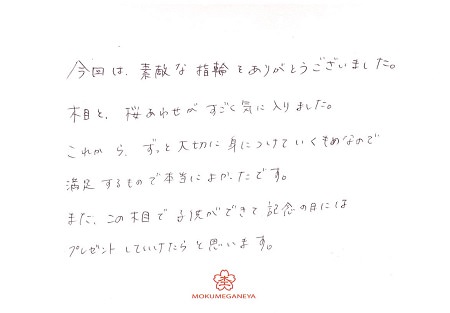 今回は、素敵な指輪をありがとうございました。
木目と、桜あわせがすごく気に入りました。
これから、ずっと大切に身につけていくものなので
満足するもので本当によかったです。
また、この木目でができて記念の日には
プレゼントしていけたらと思います。
MOKUMEGANEYA